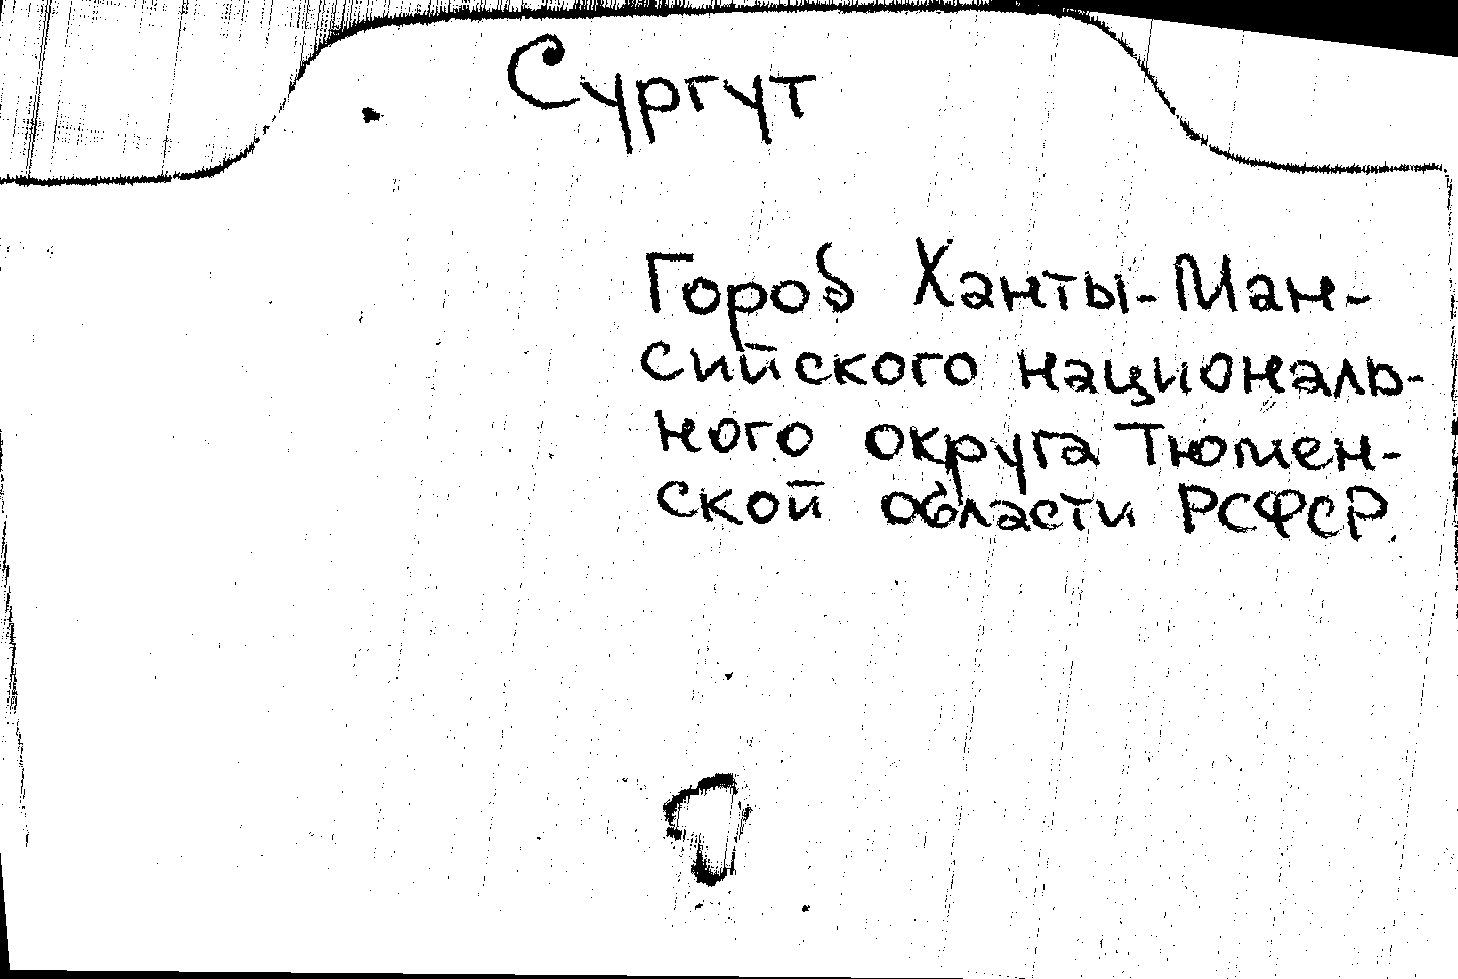 Сургут
Город Ханты-Ман-
сийского националь-
ного округа Тюмен-
ской области РСФСР.